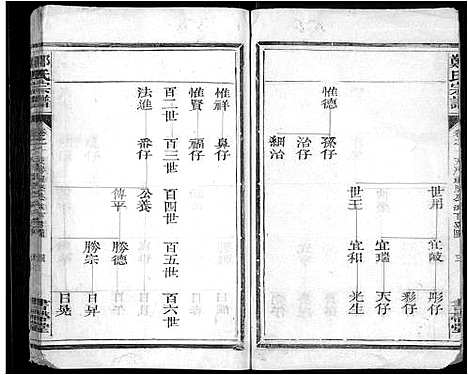 鄭氏宗譜
惟德
孫仔
治仔
細治
世用
世王
宜岐
宜瑞
宜和
彤仔
彩仔
天仔
光生
惟祥
鼻仔
惟賢
福仔
百二世
百三世
百四世
百五世
百六世
法進
番仔
公養
傳平
勝德
勝宗
日昇
日晃
鄭氏宗譜
書帶堂